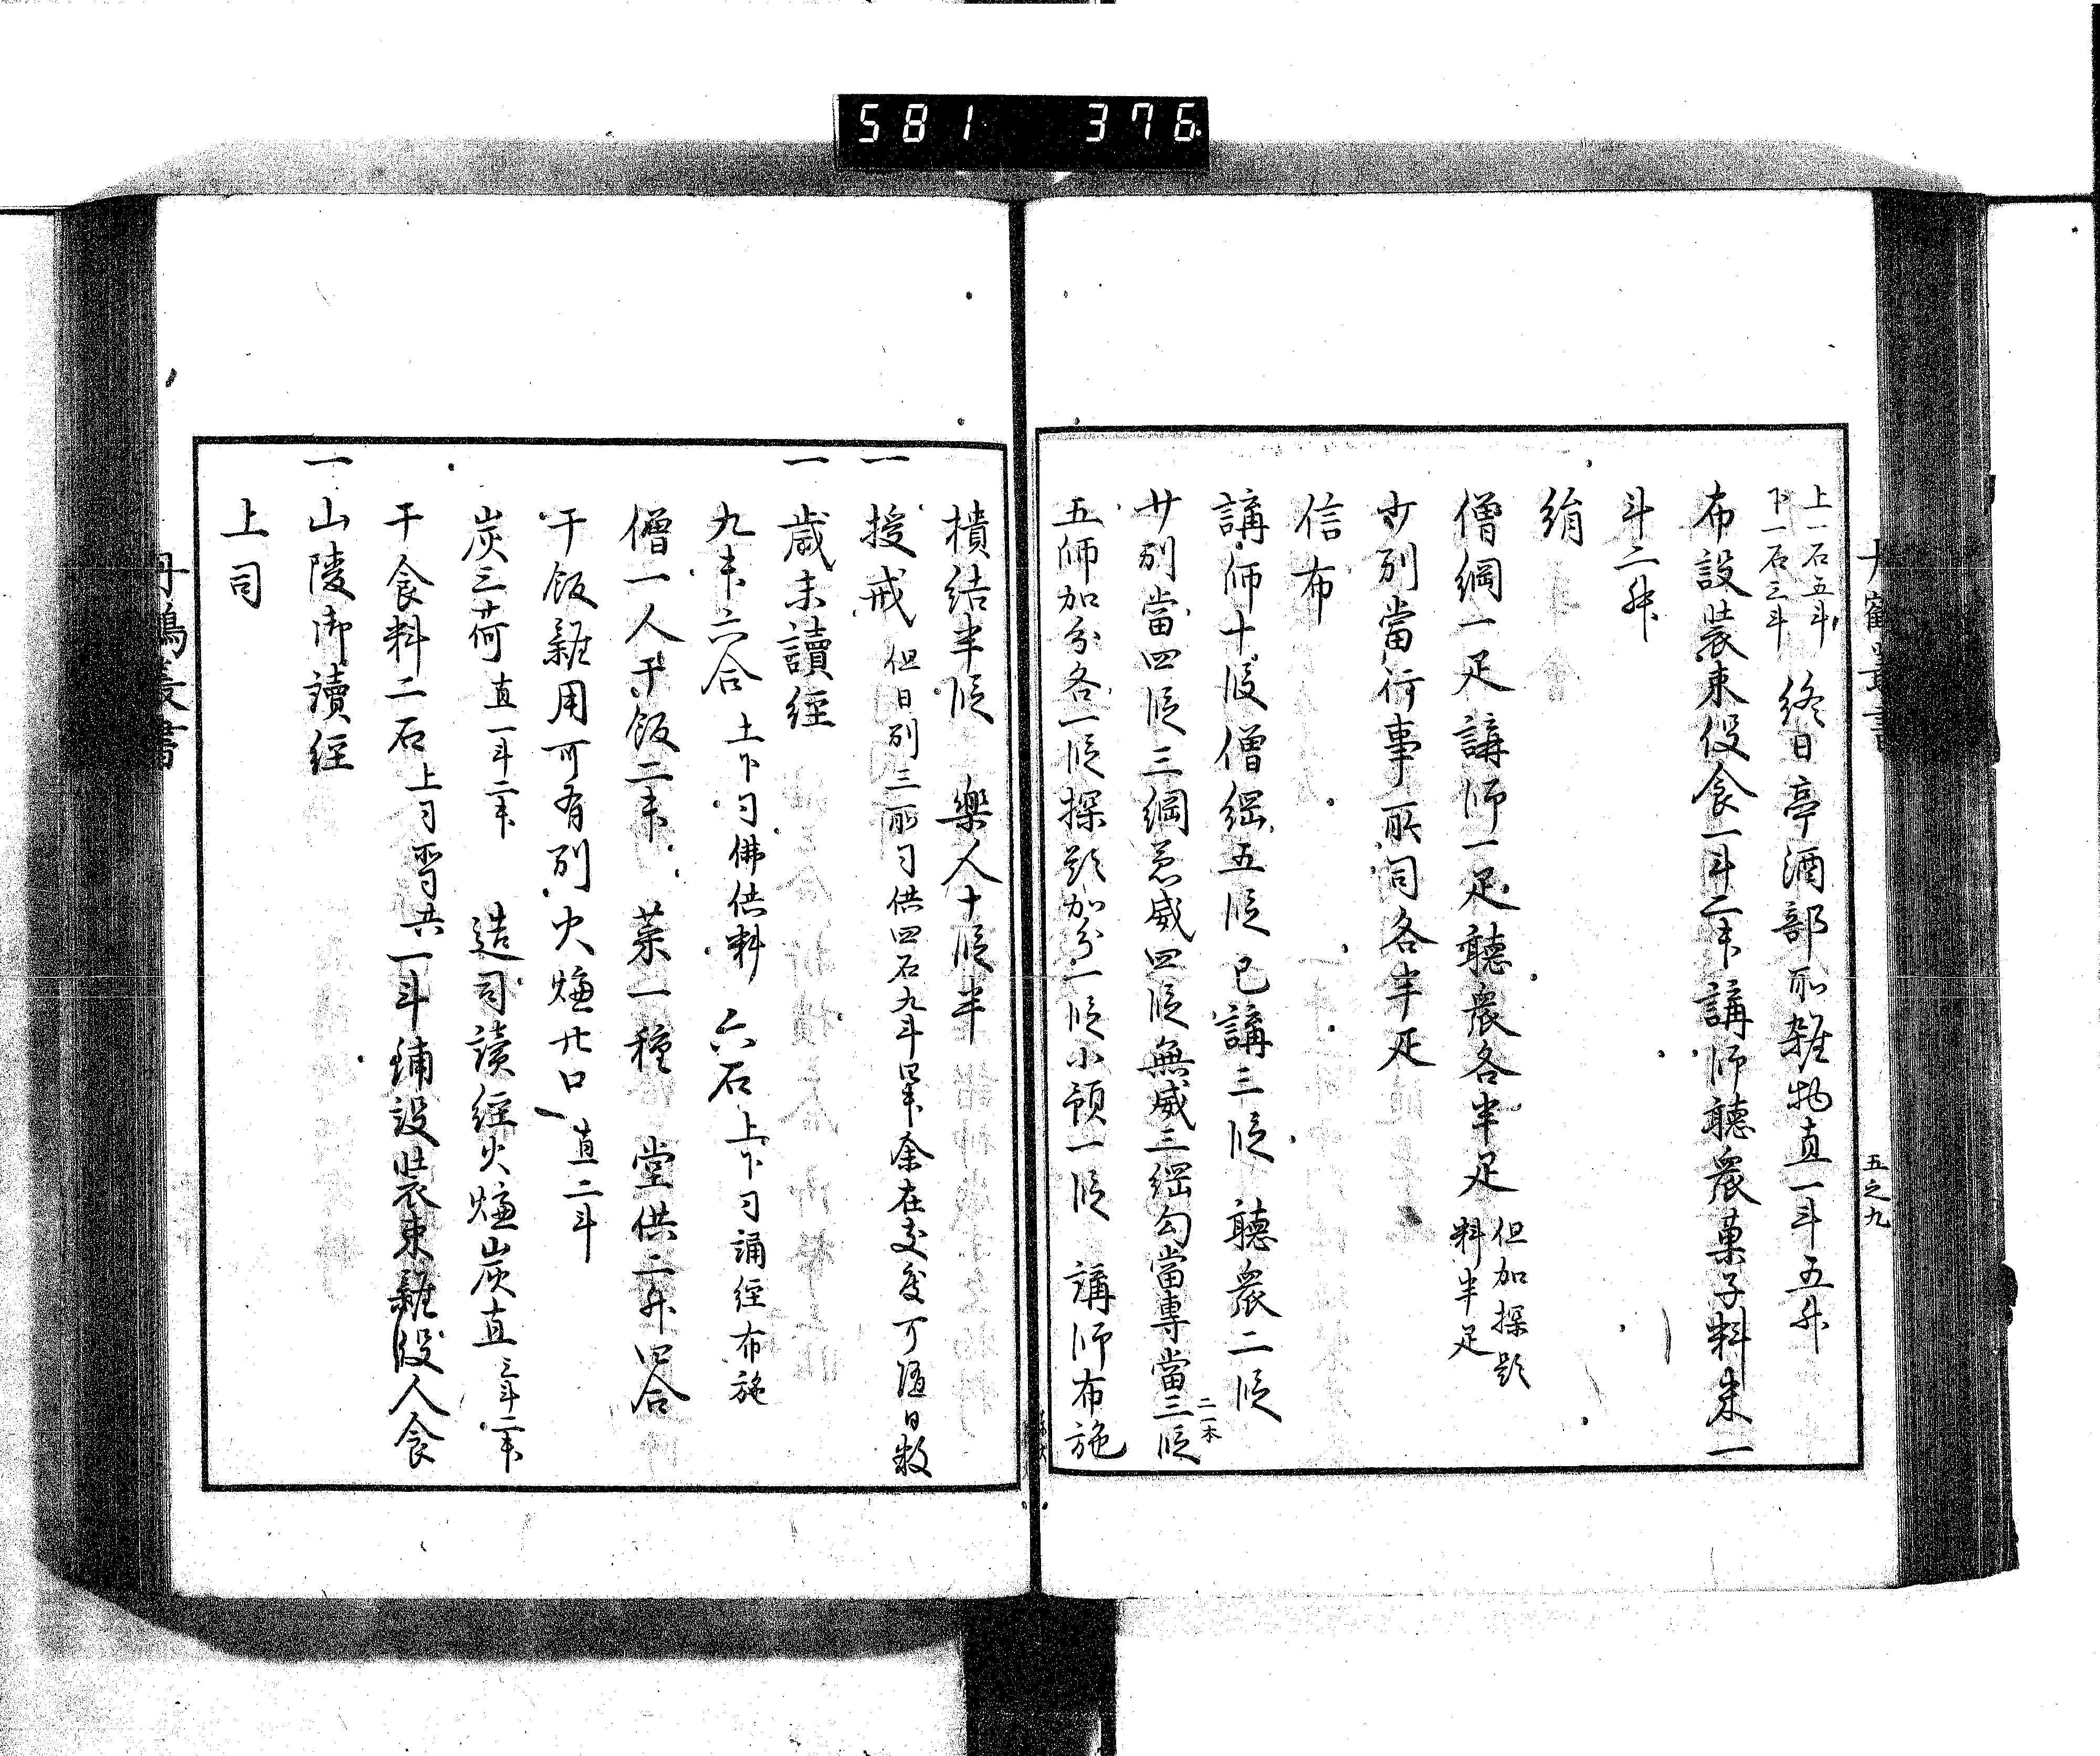 581 376
五之九
上一石五斗
下一石三斗
終日亭酒部所雑物直一斗五升
布設装束役食一斗二升 講師聴衆菓子料米一
斗二升
絹
僧綱一疋 講師一疋 聴衆各半疋 但加探題
料半疋
少別當行事所司各半疋
信布
講師十段 僧綱五段 已講三段 聴衆二段
廿別當四段 三綱 威四段 無威三綱勾當專當三段
二一本
五師加分各一段 探題加分一段 小預一段 講師布施
積結半段 樂人十段半
一 授戒 但日別三所司供四石九斗 余在 可随日数
一 歳末讀經
九 六合 上下司佛供料 六石 上下司誦経布施
僧一人干飯二 菜一種 堂供二升四合
干飯雜用可有別 火爐廿口 直二斗
炭三荷 直一斗二 造司讀經火爐炭直 三斗二
干食料二石 上司 共一斗 鋪設装束雜役人食
一 山陵御讀經
上司
丹鶴叢書